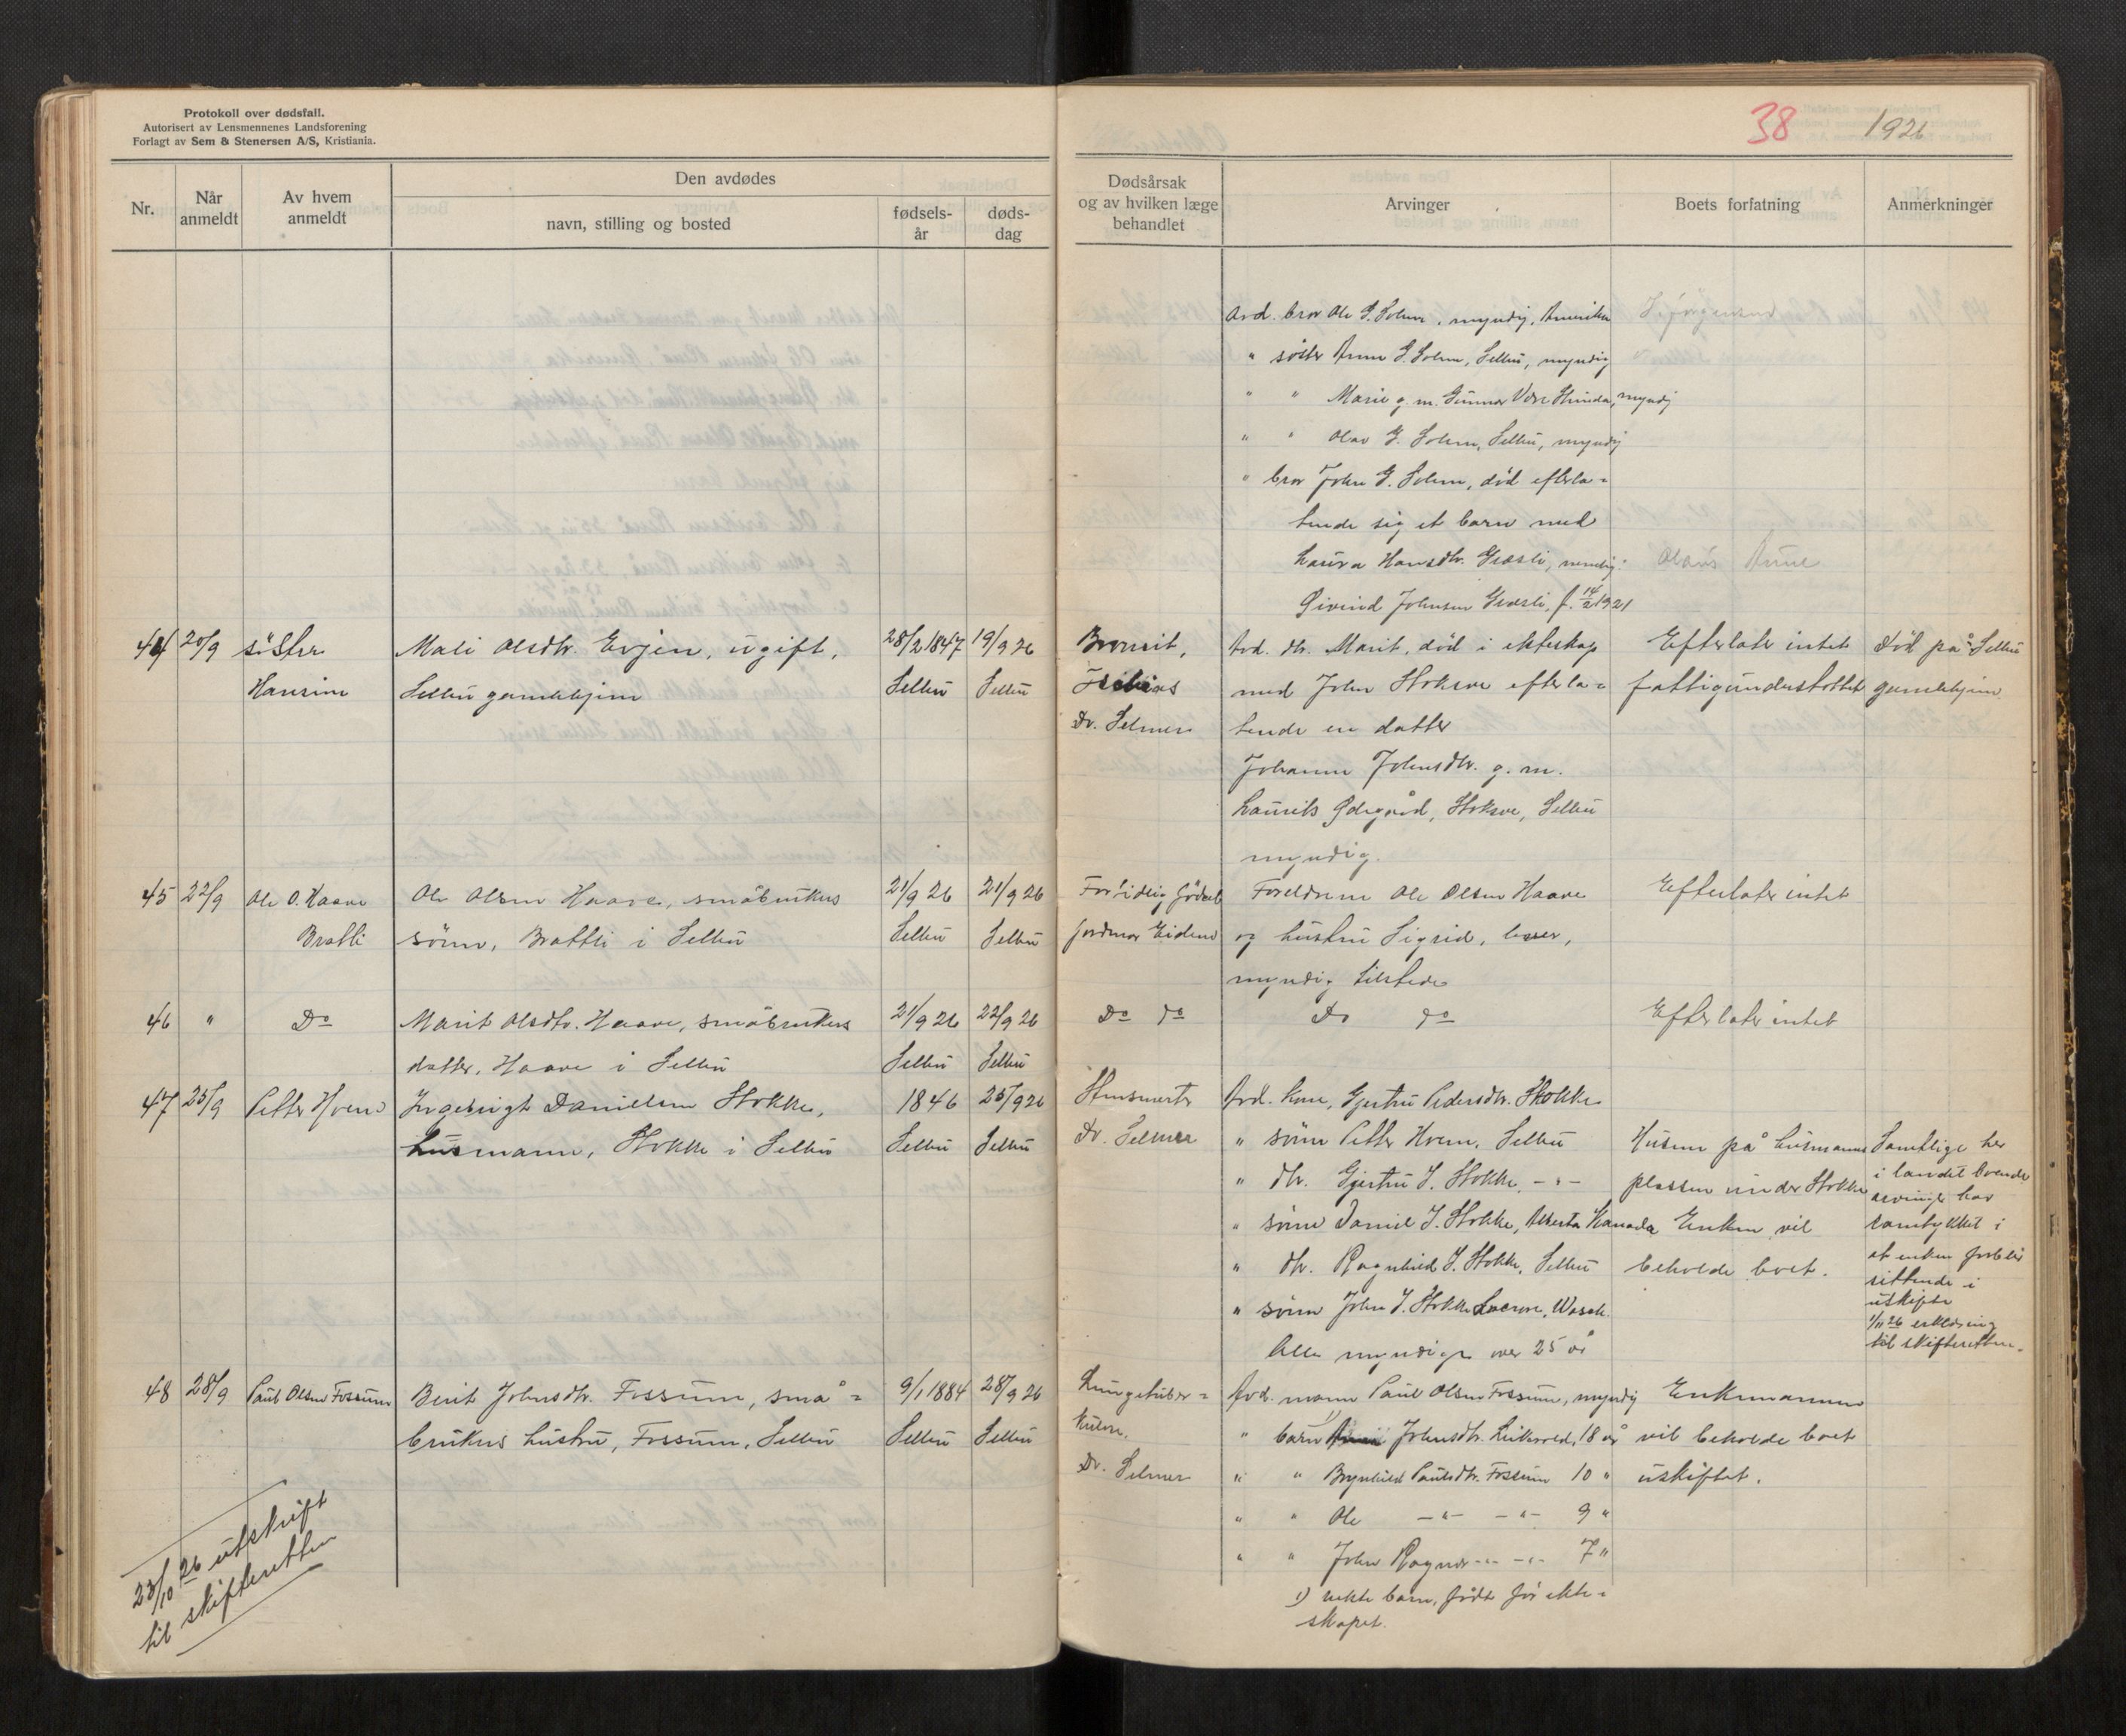 Protokoll over dødsfall.
Autorisert av Lensmennenes Landsforening
Forlagt av Sem & Stenersen A/S, Kristiania.
38 1926
Nr.
Når anmeldt
Av hvem anmeldt
Den avdødes
navn, stilling og bosted
fødsels-år
døds-dag
Dødsårsak og av hvilken læge behandlet
Arvinger
Boets forfatning
Anmerkninger
Avd. bror Ole G. Solem, myndig, Amerika
" søster Anne G. Solem, Selbu, myndig
" " Marie g. m. Gunnar, myndig
" " Olav G. Solem, Selbu, myndig
" bror John G. Solem, død efterla=
tende sig et barn med
Laura Hansdtr. Græsli, nemlig:
Eivind Johnsen Græsli, f. 1921
44 20/9 søster Mali Olsdtr. Evjen, ugift, 28/2 1847 19/9 26 Avd. dtr. Marit, død i ekteskap Efterlater intet Død på Selbu
Hansine Selbu gamlehjem Selbu Selbu med John Stokke efterla= fattigunderstøttet gamlehjem.
Dr. Selmer tende en datter
Johanna Johnsdtr. g. m.
Laurits Ødegård, Selbu
myndig.
45 22/9 Ole O. Haave Ole Olsen Haave, småbrukers 21/9 26 21/9 26 For tidlig fødsel Foreldrene Ole Olsen Haave Efterlater intet
Bratli sønn, Brattli i Selbu Selbu Selbu jordmor Eidem og hustru Sigrid, lever,
myndig tilstede
46 " Do Marit Olsdtr. Haave, småbrukers 21/9 26 22/9 26 Do do Do do Efterlater intet
datter, Haave i Selbu Selbu Selbu
47 25/9 Petter Hvem Ingebrigt Danielsen Stokke, 1846 25/9 26 Avd. kone, Gjertru Pedersdtr. Stokke
husmann, Stokke i Selbu Selbu Selbu Dr. Selmer " sønn Petter Hvem, Selbu Husene på husmanns Samtlige her
" dtr. Gjertru I. Stokke, -"- plassen under Stokke i landet boende
arvinger har
" sønn Daniel I. Stokke, Alberta Kanada Enken vil samtykket i
at enken forblir
" dtr. Ragnhild I. Stokke, Selbu beholde boet. sittende i
" sønn John I. Stokke, Wash. uskifte
1/11 26 erklæring
Alle myndige over 25 år til skifteretten.
48 28/9 Paul Olsen Fossum Berit Johnsdtr. Fossum, små= 9/1 1884 28/9 26 Lungetuber= Avd. mann Paul Olsen Fossum, myndig Enkemannen
brukers hustru, Fossum, Selbu Selbu Selbu kulose. " barn 1) Johnsdtr. 18 år vil beholde boet
Dr. Selmer " " Brynhild Paulsdtr. Fossum 10 " uskiftet.
" " Ole -"- -"- 9 "
" " John Ragnar -"- -"- 7 "
1) uekte barn, født før ekte=
skapet.
23/10 26 utskrift
til skifteretten